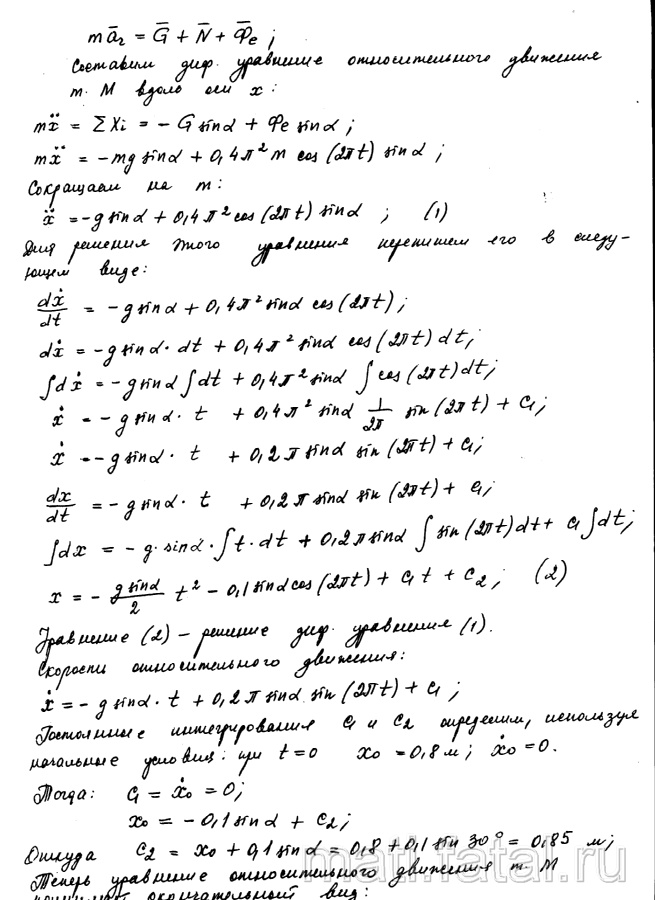 mā₂ = Ḡ + N̄ + Φ̄e ;
Составим диф. уравнение относительного движения
т. M вдоль оси x:
mẍ = ΣXi = − G sinα + Φe sinα ;
mẍ = −mg sinα + 0,4π² m cos(2πt) sinα ;
Сокращаем на m:
ẍ = −g sinα + 0,4π² cos(2πt) sinα ; (1)
Для решения этого уравнения перепишем его в следу-
ющем виде:
dẋ/dt = −g sinα + 0,4π² sinα cos(2πt);
dẋ = −g sinα · dt + 0,4π² sinα cos(2πt) dt;
∫dẋ = −g sinα ∫dt + 0,4π² sinα ∫ cos(2πt)dt;
ẋ = −g sinα · t + 0,4π² sinα 1/2π sin(2πt) + C₁;
ẋ = −g sinα · t + 0,2π sinα sin(2πt) + C₁;
dx/dt = −g sinα · t + 0,2π sinα sin(2πt) + C₁;
∫dx = −g · sinα · ∫t · dt + 0,2π sinα ∫ sin(2πt)dt + C₁∫dt;
x = − g sinα/2 t² − 0,1 sinα cos(2πt) + C₁t + C₂; (2)
Уравнение (2) – решение диф. уравнения (1).
Скорости относительного движения:
ẋ = −g sinα · t + 0,2π sinα sin(2πt) + C₁ ;
Постоянные интегрирования C₁ и C₂ определим, используя
начальные условия: при t=0 x₀ = 0,8 м; ẋ₀ = 0.
Тогда: C₁ = ẋ₀ = 0;
x₀ = −0,1 sinα + C₂;
Откуда C₂ = x₀ + 0,1 sinα = 0,8 + 0,1 sin 30° = 0,85 м;
Теперь уравнение относительного движения т. M
окончательный вид:
mati.fatal.ru